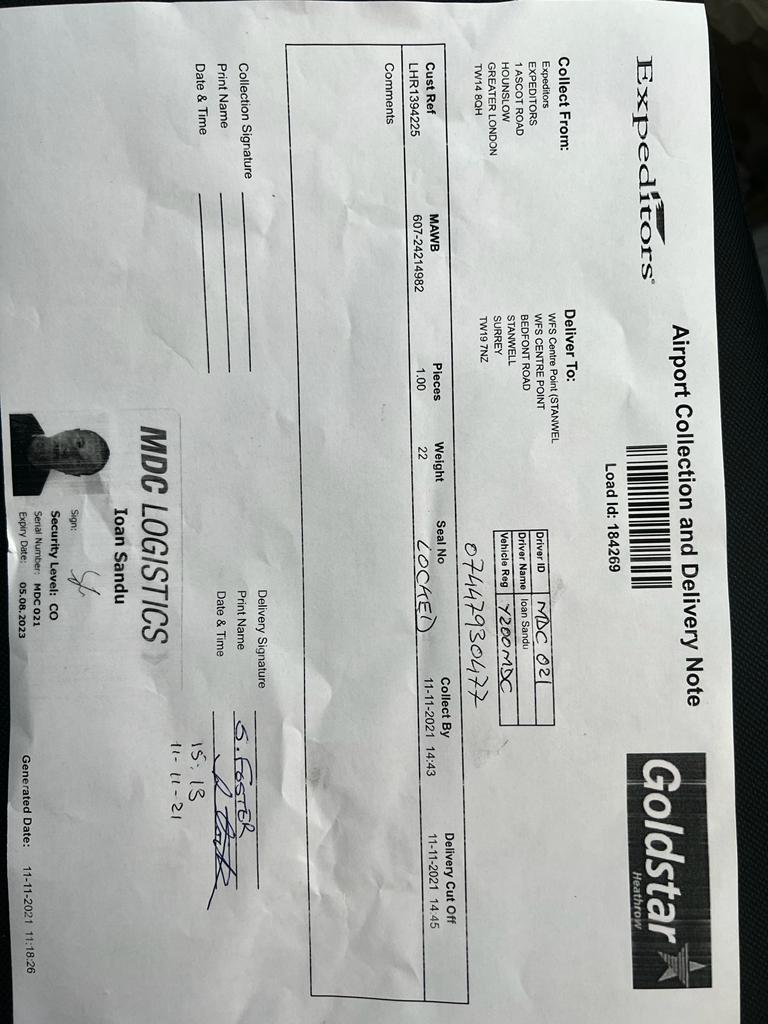 Expeditors®
Airport Collection and Delivery Note
Goldstar
Heathrow
Load Id: 184269
Collect From:
Expeditors
EXPEDITORS
1 ASCOT ROAD
HOUNSLOW
GREATER LONDON
TW14 8QH
Deliver To:
WFS Centre Point (STANWEL
WFS CENTRE POINT
BEDFONT ROAD
STANWELL
SURREY
TW19 7NZ
Driver ID MDC 021
Driver Name Ioan Sandu
Vehicle Reg Y200MDC
07447930477
Cust Ref MAWB Pieces Weight Seal No Collect By Delivery Cut Off
LHR1394225 607-24214982 1.00 22 LOCKED 11-11-2021 14:43 11-11-2021 14:45
Comments
Collection Signature
Print Name
Date & Time
Delivery Signature
Print Name S. FOSTER
Date & Time 15:13
11-11-21
MDC LOGISTICS
Ioan Sandu
Sign:
Security Level: CO
Serial Number: MDC 021
Expiry Date: 05.08.2023
Generated Date: 11-11-2021 11:18:26